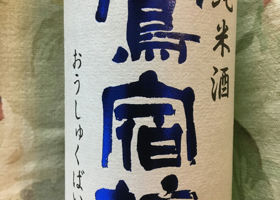 純米酒
鶯宿梅
おうしゅくばい